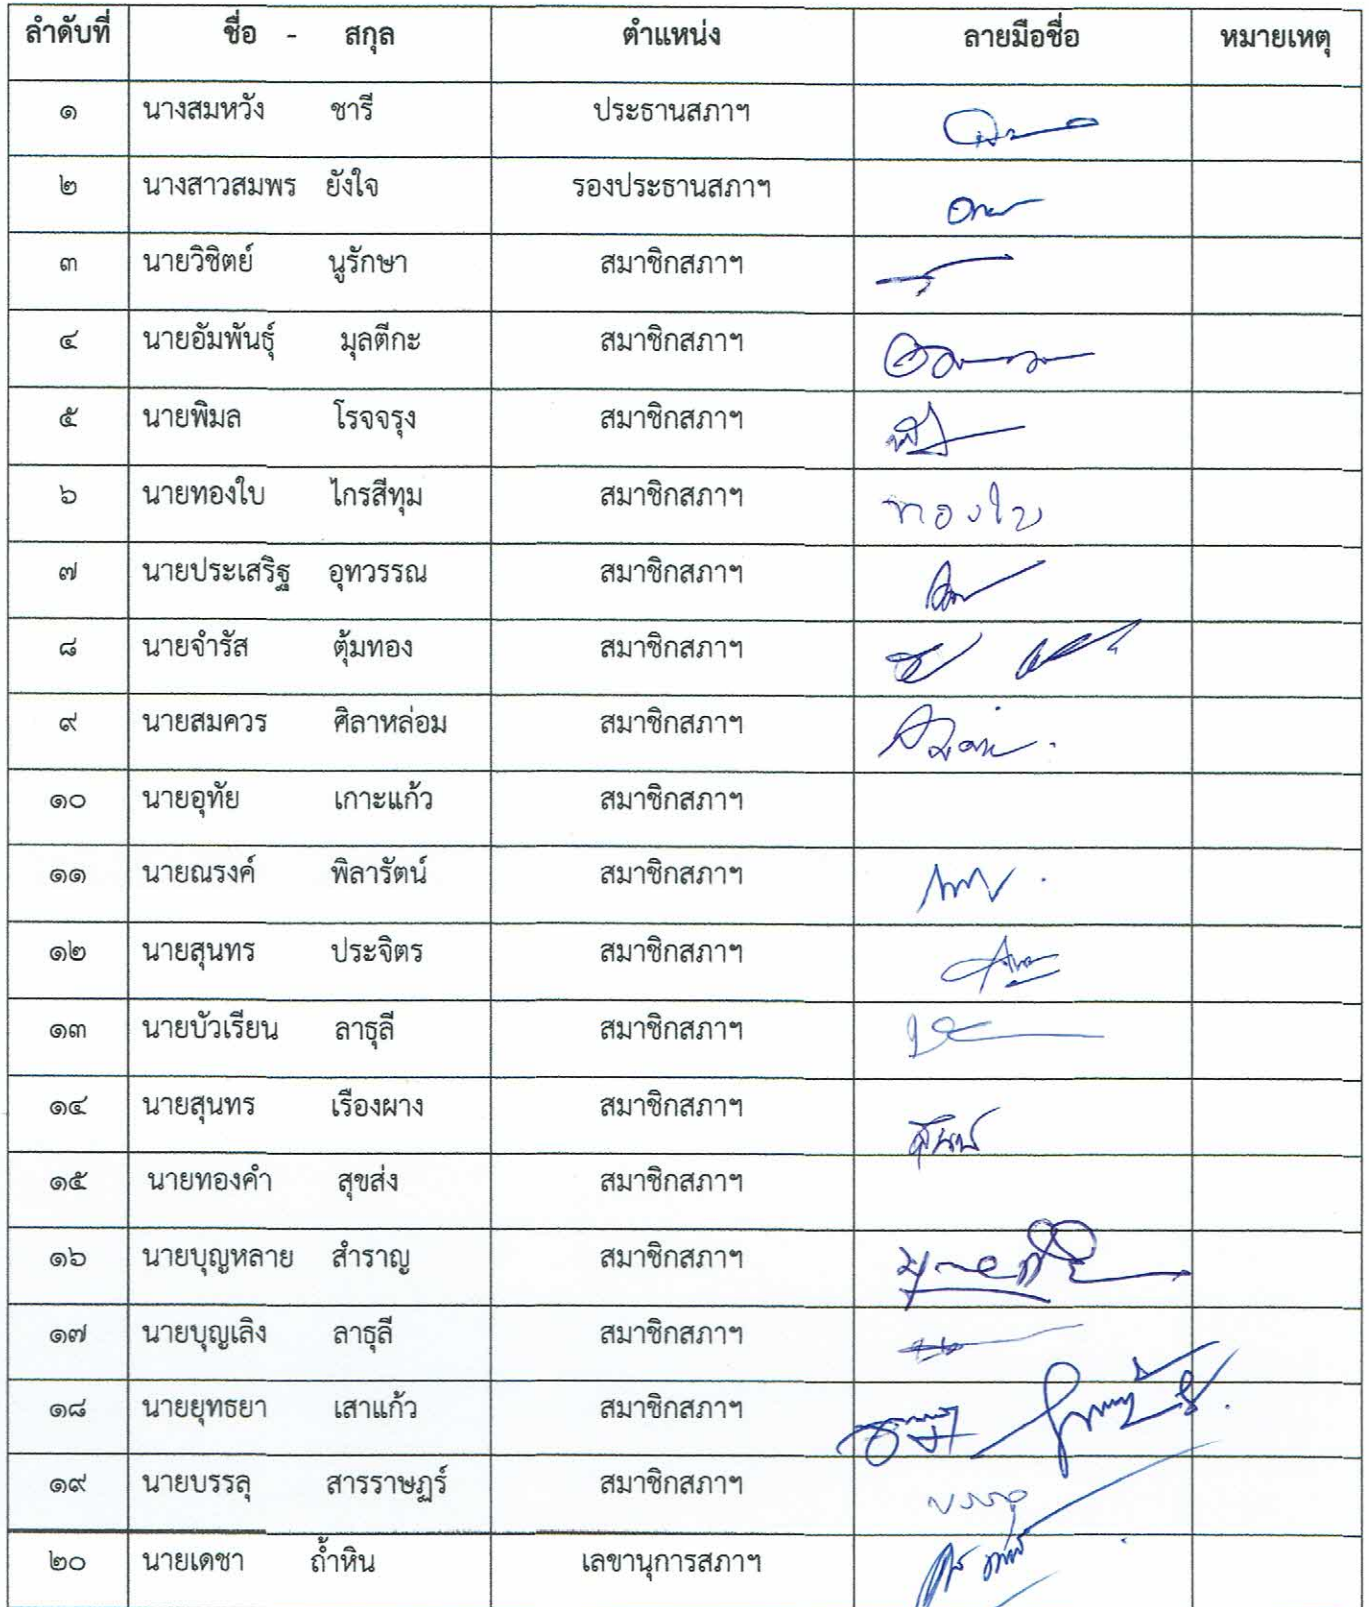 ลำดับที่ ชื่อ - สกุล ตำแหน่ง ลายมือชื่อ หมายเหตุ
๑ นางสมหวัง ชารี ประธานสภาฯ
๒ นางสาวสมพร ยังใจ รองประธานสภาฯ
๓ นายวิชิตย์ นูรักษา สมาชิกสภาฯ
๔ นายอัมพันธุ์ มุลตีกะ สมาชิกสภาฯ
๕ นายพิมล โรจจรุง สมาชิกสภาฯ
๖ นายทองใบ ไกรสีทุม สมาชิกสภาฯ ทองใบ
๗ นายประเสริฐ อุทวรรณ สมาชิกสภาฯ
๘ นายจำรัส ตุ้มทอง สมาชิกสภาฯ
๙ นายสมควร ศิลาหล่อม สมาชิกสภาฯ
๑๐ นายอุทัย เกาะแก้ว สมาชิกสภาฯ
๑๑ นายณรงค์ พิลารัตน์ สมาชิกสภาฯ
๑๒ นายสุนทร ประจิตร สมาชิกสภาฯ
๑๓ นายบัวเรียน ลาธุลี สมาชิกสภาฯ
๑๔ นายสุนทร เรืองผาง สมาชิกสภาฯ
๑๕ นายทองคำ สุขส่ง สมาชิกสภาฯ
๑๖ นายบุญหลาย สำราญ สมาชิกสภาฯ
๑๗ นายบุญเลิง ลาธุลี สมาชิกสภาฯ
๑๘ นายยุทธยา เสาแก้ว สมาชิกสภาฯ
๑๙ นายบรรลุ สารราษฏร์ สมาชิกสภาฯ บรรลุ
๒๐ นายเดชา ถ้ำหิน เลขานุการสภาฯ